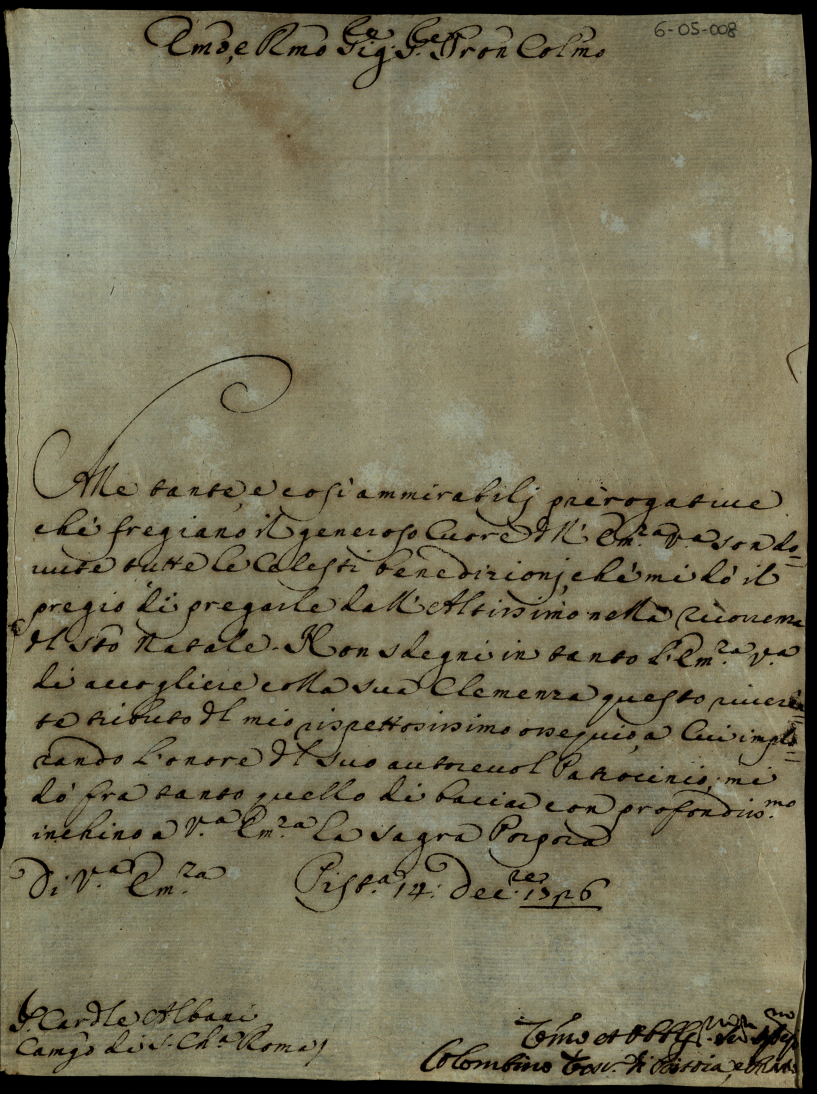 6-05-008
Emo, e Rmo Sig.re P.re Pron Colmo
Alle tante, e così ammirabilj prerogative
che fregiano il generoso Cuore dll' Em.ra V.ra son do=
vute tutte le Celesti benedizionj, che mi dò il
pregio di pregarle dall' Altissimo nella ricorrenza
dl Sto Natale. Non sdegni in tanto l'Em.ra V.a
di accogliere colla sua Clemenza questo riveren=
te tributo dl mio rispettosissimo ossequio, a Cui implo=
rando l'onore dl suo autorevol Patrocinio, mi
dò fra tanto quello di baciar con profondiss.mo
inchino a V.a Em.ra la sagra Porpora
Di V.a Em.ra Pist.a 14: Dec.re 1726
S. Cardle Albani
Camgo di S. Ch.a Roma
Colombino Vesc. di Pistoia, e Prato